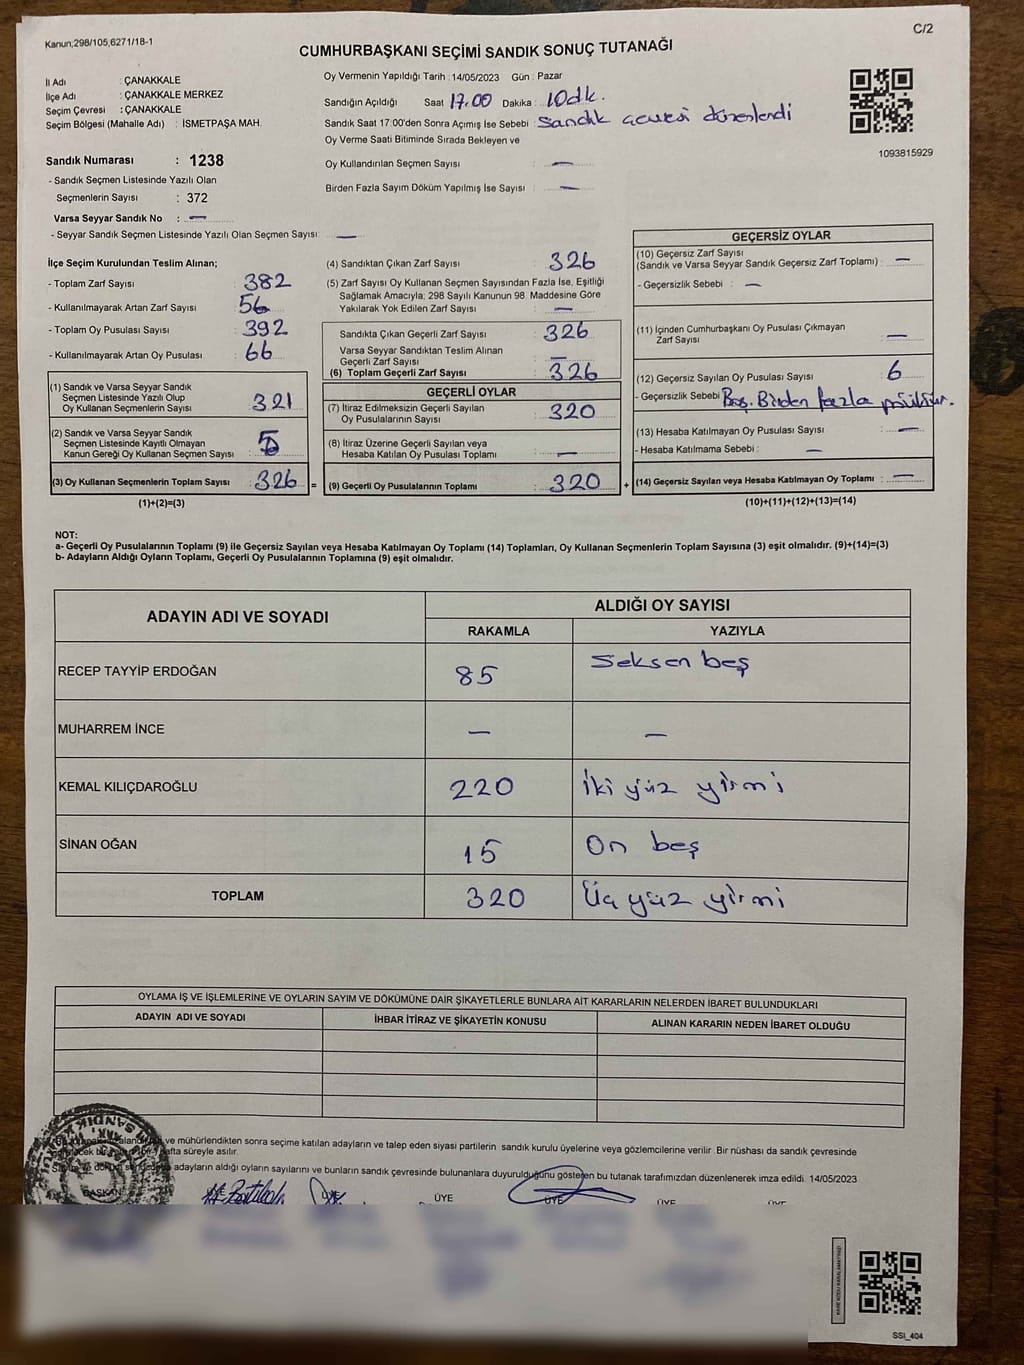 Kanun,298/105,6271/18-1
C/2
CUMHURBAŞKANI SEÇİMİ SANDIK SONUÇ TUTANAĞI
İl Adı : ÇANAKKALE
İlçe Adı : ÇANAKKALE MERKEZ
Seçim Çevresi : ÇANAKKALE
Seçim Bölgesi (Mahalle Adı) : İSMETPAŞA MAH.
Oy Vermenin Yapıldığı Tarih : 14/05/2023 Gün : Pazar
Sandığın Açıldığı Saat 17.00 Dakika : 10dk.
Sandık Saat 17:00'den Sonra Açımış İse Sebebi : Sandık çevresi düzenlendi
Oy Verme Saati Bitiminde Sırada Bekleyen ve
Oy Kullandırılan Seçmen Sayısı —
Birden Fazla Sayım Döküm Yapılmış İse Sayısı —
1093815929
Sandık Numarası : 1238
- Sandık Seçmen Listesinde Yazılı Olan
Seçmenlerin Sayısı : 372
Varsa Seyyar Sandık No : —
- Seyyar Sandık Seçmen Listesinde Yazılı Olan Seçmen Sayısı: —
İlçe Seçim Kurulundan Teslim Alınan;
- Toplam Zarf Sayısı : 382
- Kullanılmayarak Artan Zarf Sayısı : 56
- Toplam Oy Pusulası Sayısı : 392
- Kullanılmayarak Artan Oy Pusulası : 66
(1) Sandık ve Varsa Seyyar Sandık
Seçmen Listesinde Yazılı Olup
Oy Kullanan Seçmenlerin Sayısı : 321
(2) Sandık ve Varsa Seyyar Sandık
Seçmen Listesinde Kayıtlı Olmayan
Kanun Gereği Oy Kullanan Seçmen Sayısı : 5
(3) Oy Kullanan Seçmenlerin Toplam Sayısı : 326 =
(1)+(2)=(3)
(4) Sandıktan Çıkan Zarf Sayısı : 326
(5) Zarf Sayısı Oy Kullanan Seçmen Sayısından Fazla İse, Eşitliği
Sağlamak Amacıyla; 298 Sayılı Kanunun 98. Maddesine Göre
Yakılarak Yok Edilen Zarf Sayısı : —
Sandıkta Çıkan Geçerli Zarf Sayısı : 326
Varsa Seyyar Sandıktan Teslim Alınan
Geçerli Zarf Sayısı : —
(6) Toplam Geçerli Zarf Sayısı : 326
GEÇERLİ OYLAR
(7) İtiraz Edilmeksizin Geçerli Sayılan
Oy Pusulasının Sayısı : 320
(8) İtiraz Üzerine Geçerli Sayılan veya
Hesaba Katılan Oy Pusulası Toplamı : —
(9) Geçerli Oy Pusulalarının Toplamı : 320 +
GEÇERSİZ OYLAR
(10) Geçersiz Zarf Sayısı
(Sandık ve Varsa Seyyar Sandık Geçersiz Zarf Toplamı) : —
- Geçersizlik Sebebi : —
(11) İçinden Cumhurbaşkanı Oy Pusulası Çıkmayan
Zarf Sayısı : —
(12) Geçersiz Sayılan Oy Pusulası Sayısı : 6
- Geçersizlik Sebebi : Boş. Birden fazla
(13) Hesaba Katılmayan Oy Pusulası Sayısı : —
- Hesaba Katılmama Sebebi : —
(14) Geçersiz Sayılan veya Hesaba Katılmayan Oy Toplamı : —
(10)+(11)+(12)+(13)=(14)
NOT:
a- Geçerli Oy Pusulalarının Toplamı (9) ile Geçersiz Sayılan veya Hesaba Katılmayan Oy Toplamı (14) Toplamları, Oy Kullanan Seçmenlerin Toplam Sayısına (3) eşit olmalıdır. (9)+(14)=(3)
b- Adayların Aldığı Oyların Toplamı, Geçerli Oy Pusulalarının Toplamına (9) eşit olmalıdır.
ADAYIN ADI VE SOYADI
ALDIĞI OY SAYISI
RAKAMLA YAZIYLA
RECEP TAYYİP ERDOĞAN 85 Seksen beş
MUHARREM İNCE — —
KEMAL KILIÇDAROĞLU 220 İki yüz yirmi
SİNAN OĞAN 15 On beş
TOPLAM 320 Üç yüz yirmi
OYLAMA İŞ VE İŞLEMLERİNE VE OYLARIN SAYIM VE DÖKÜMÜNE DAİR ŞİKAYETLERLE BUNLARA AİT KARARLARIN NELERDEN İBARET BULUNDUKLARI
ADAYIN ADI VE SOYADI İHBAR İTİRAZ VE ŞİKAYETİN KONUSU ALINAN KARARIN NEDEN İBARET OLDUĞU
ve mühürlendikten sonra seçime katılan adayların ve talep eden siyasi partilerin sandık kurulu üyelerine veya gözlemcilerine verilir. Bir nüshası da sandık çevresinde
hafta süreyle asılır.
adayların aldığı oyların sayılarını ve bunların sandık çevresinde bulunanlara duyurulduğunu gösteren bu tutanak tarafımızdan düzenlenerek imza edildi. 14/05/2023
BAŞKAN ÜYE ÜYE ÜYE ÜYE
SSI_404